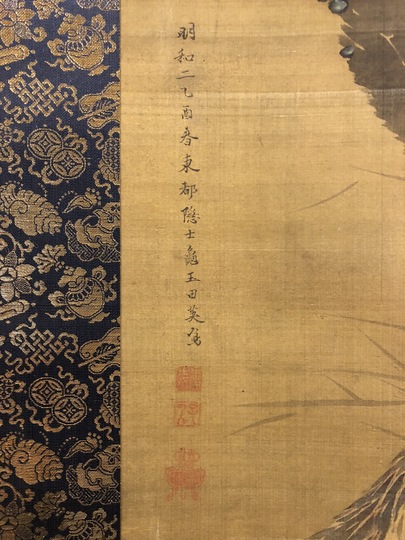 明和二乙酉春東都隠士龜玉田英寫